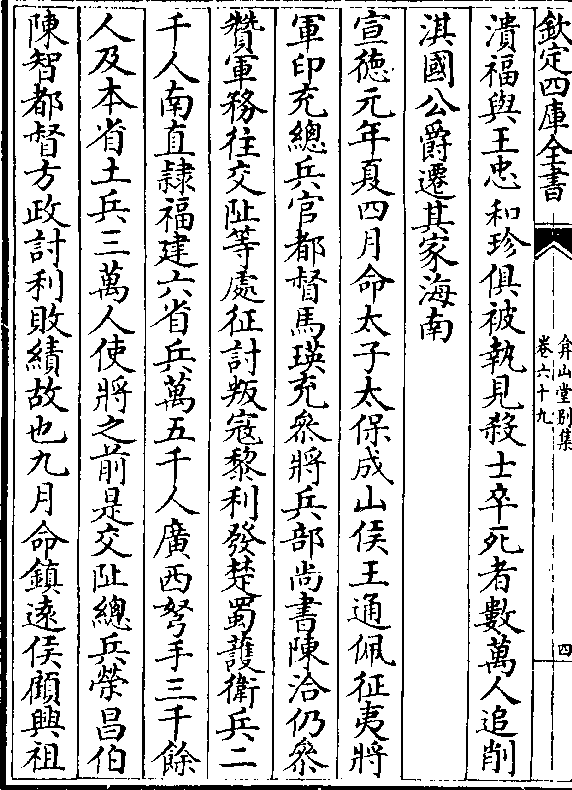 欽定四庫全書
弇山堂别集
卷六十九
四
潰福與王忠和珍俱被執見殺士卒死者數萬人追削
淇國公爵遷其家海南
宣徳元年夏四月命太子太保成山侯王通佩征夷將
軍印充總兵官都督馬瑛充叅將兵部尚書陳洽仍叅
贊軍務往交阯等處征討叛寇黎利發楚蜀護衛兵二
千人南直隷福建六省兵萬五千人廣西弩手三千餘
人及本省土兵三萬人使將之前是交阯總兵榮昌伯
陳智都督方政討利敗績故也九月命鎮遠侯顧興祖